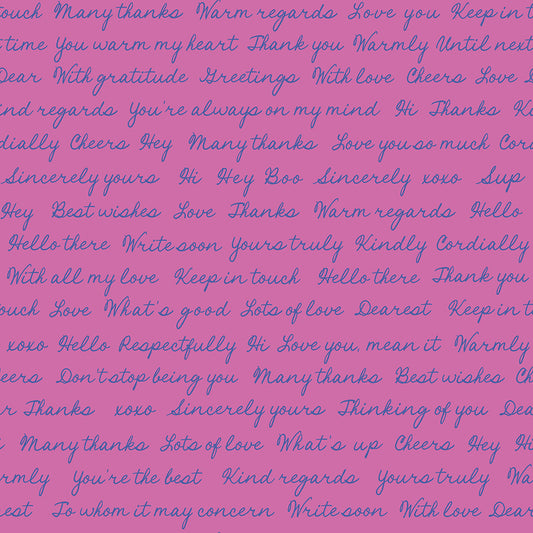 touch Many thanks Warm regards Love you Keep in t
time You warm my heart Thank you Warmly Until next
Dear With gratitude Greetings With love Cheers Love D
ind regards You're always on my mind Hi Thanks Ki
dially Cheers Hey Many thanks Love you so much Cord
Sincerely yours Hi Hey Boo Sincerely xoxo Sup
Hey Best wishes Love Thanks Warm regards Hello
Hello there Write soon Yours truly Kindly Cordially
With all my love Keep in touch Hello there Thank you
ouch Love What's good Lots of love Dearest Keep in t
xoxo Hello Respectfully Hi Love you, mean it Warmly
eers Don't stop being you Many thanks Best wishes Ch
ar Thanks xoxo Sincerely yours Thinking of you Dea
Many thanks Lots of love What's up Cheers Hey Hi
armly You're the best Kind regards Yours truly Wa
rest To whom it may concern Write soon With love Dear